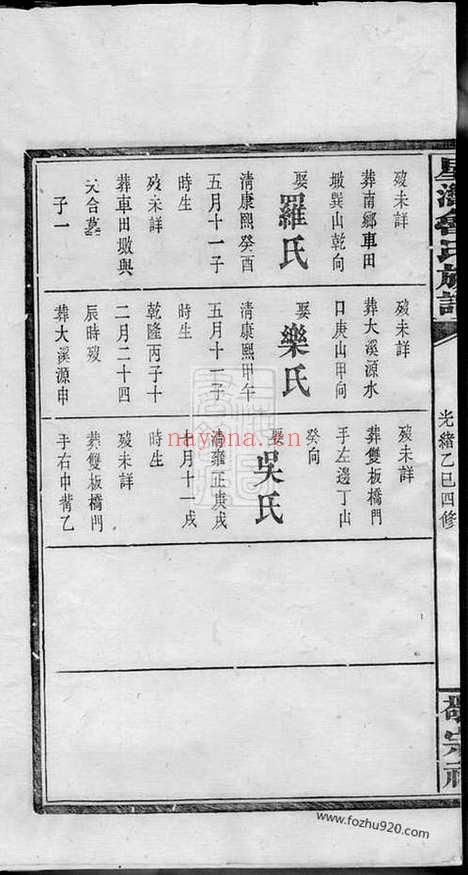 歿未詳
葬南鄉車田
墩巽山乾向
娶羅氏
清康熙癸酉
五月十一子
時生
歿未詳
葬車田墩與
夫合墓
子一
歿未詳
葬大溪源水
口庚山甲向
娶樂氏
清康熙甲午
五月十一子
時生
乾隆丙子十
二月二十四
辰時歿
葬大溪源申
歿未詳
葬雙板橋門
手左邊丁山
癸向
娶吳氏
清雍正庚戌
七月十一戌
時生
歿未詳
葬雙板橋門
手右中嘴乙
氏族譜
光緒乙巳四修
敬宗祠
nayona.cn
www.fozhu920.com